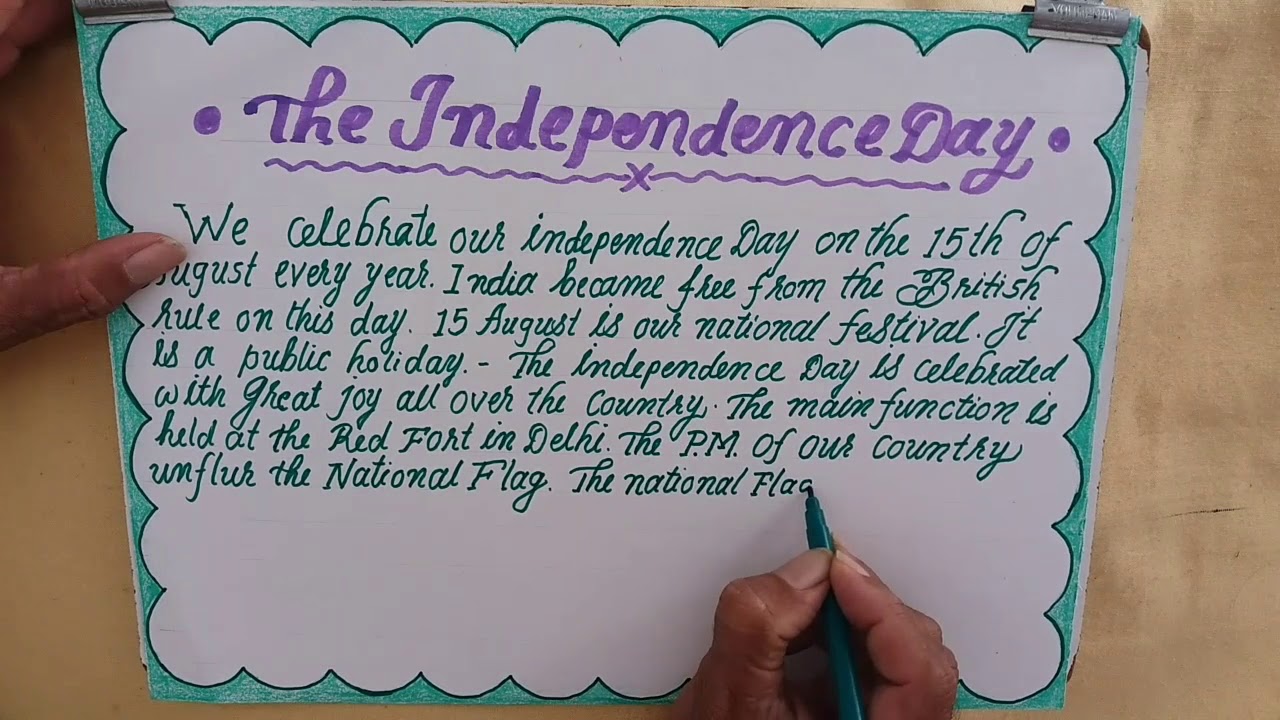 The Independence Day
We celebrate our independence Day on the 15th of
August every year. India became free from the British
rule on this day. 15 August is our national festival. It
is a public holiday. - The independence Day is celebrated
with great joy all over the country. The main function is
held at the Red Fort in Delhi. The P.M. of our country
unflur the National Flag. The national Flag